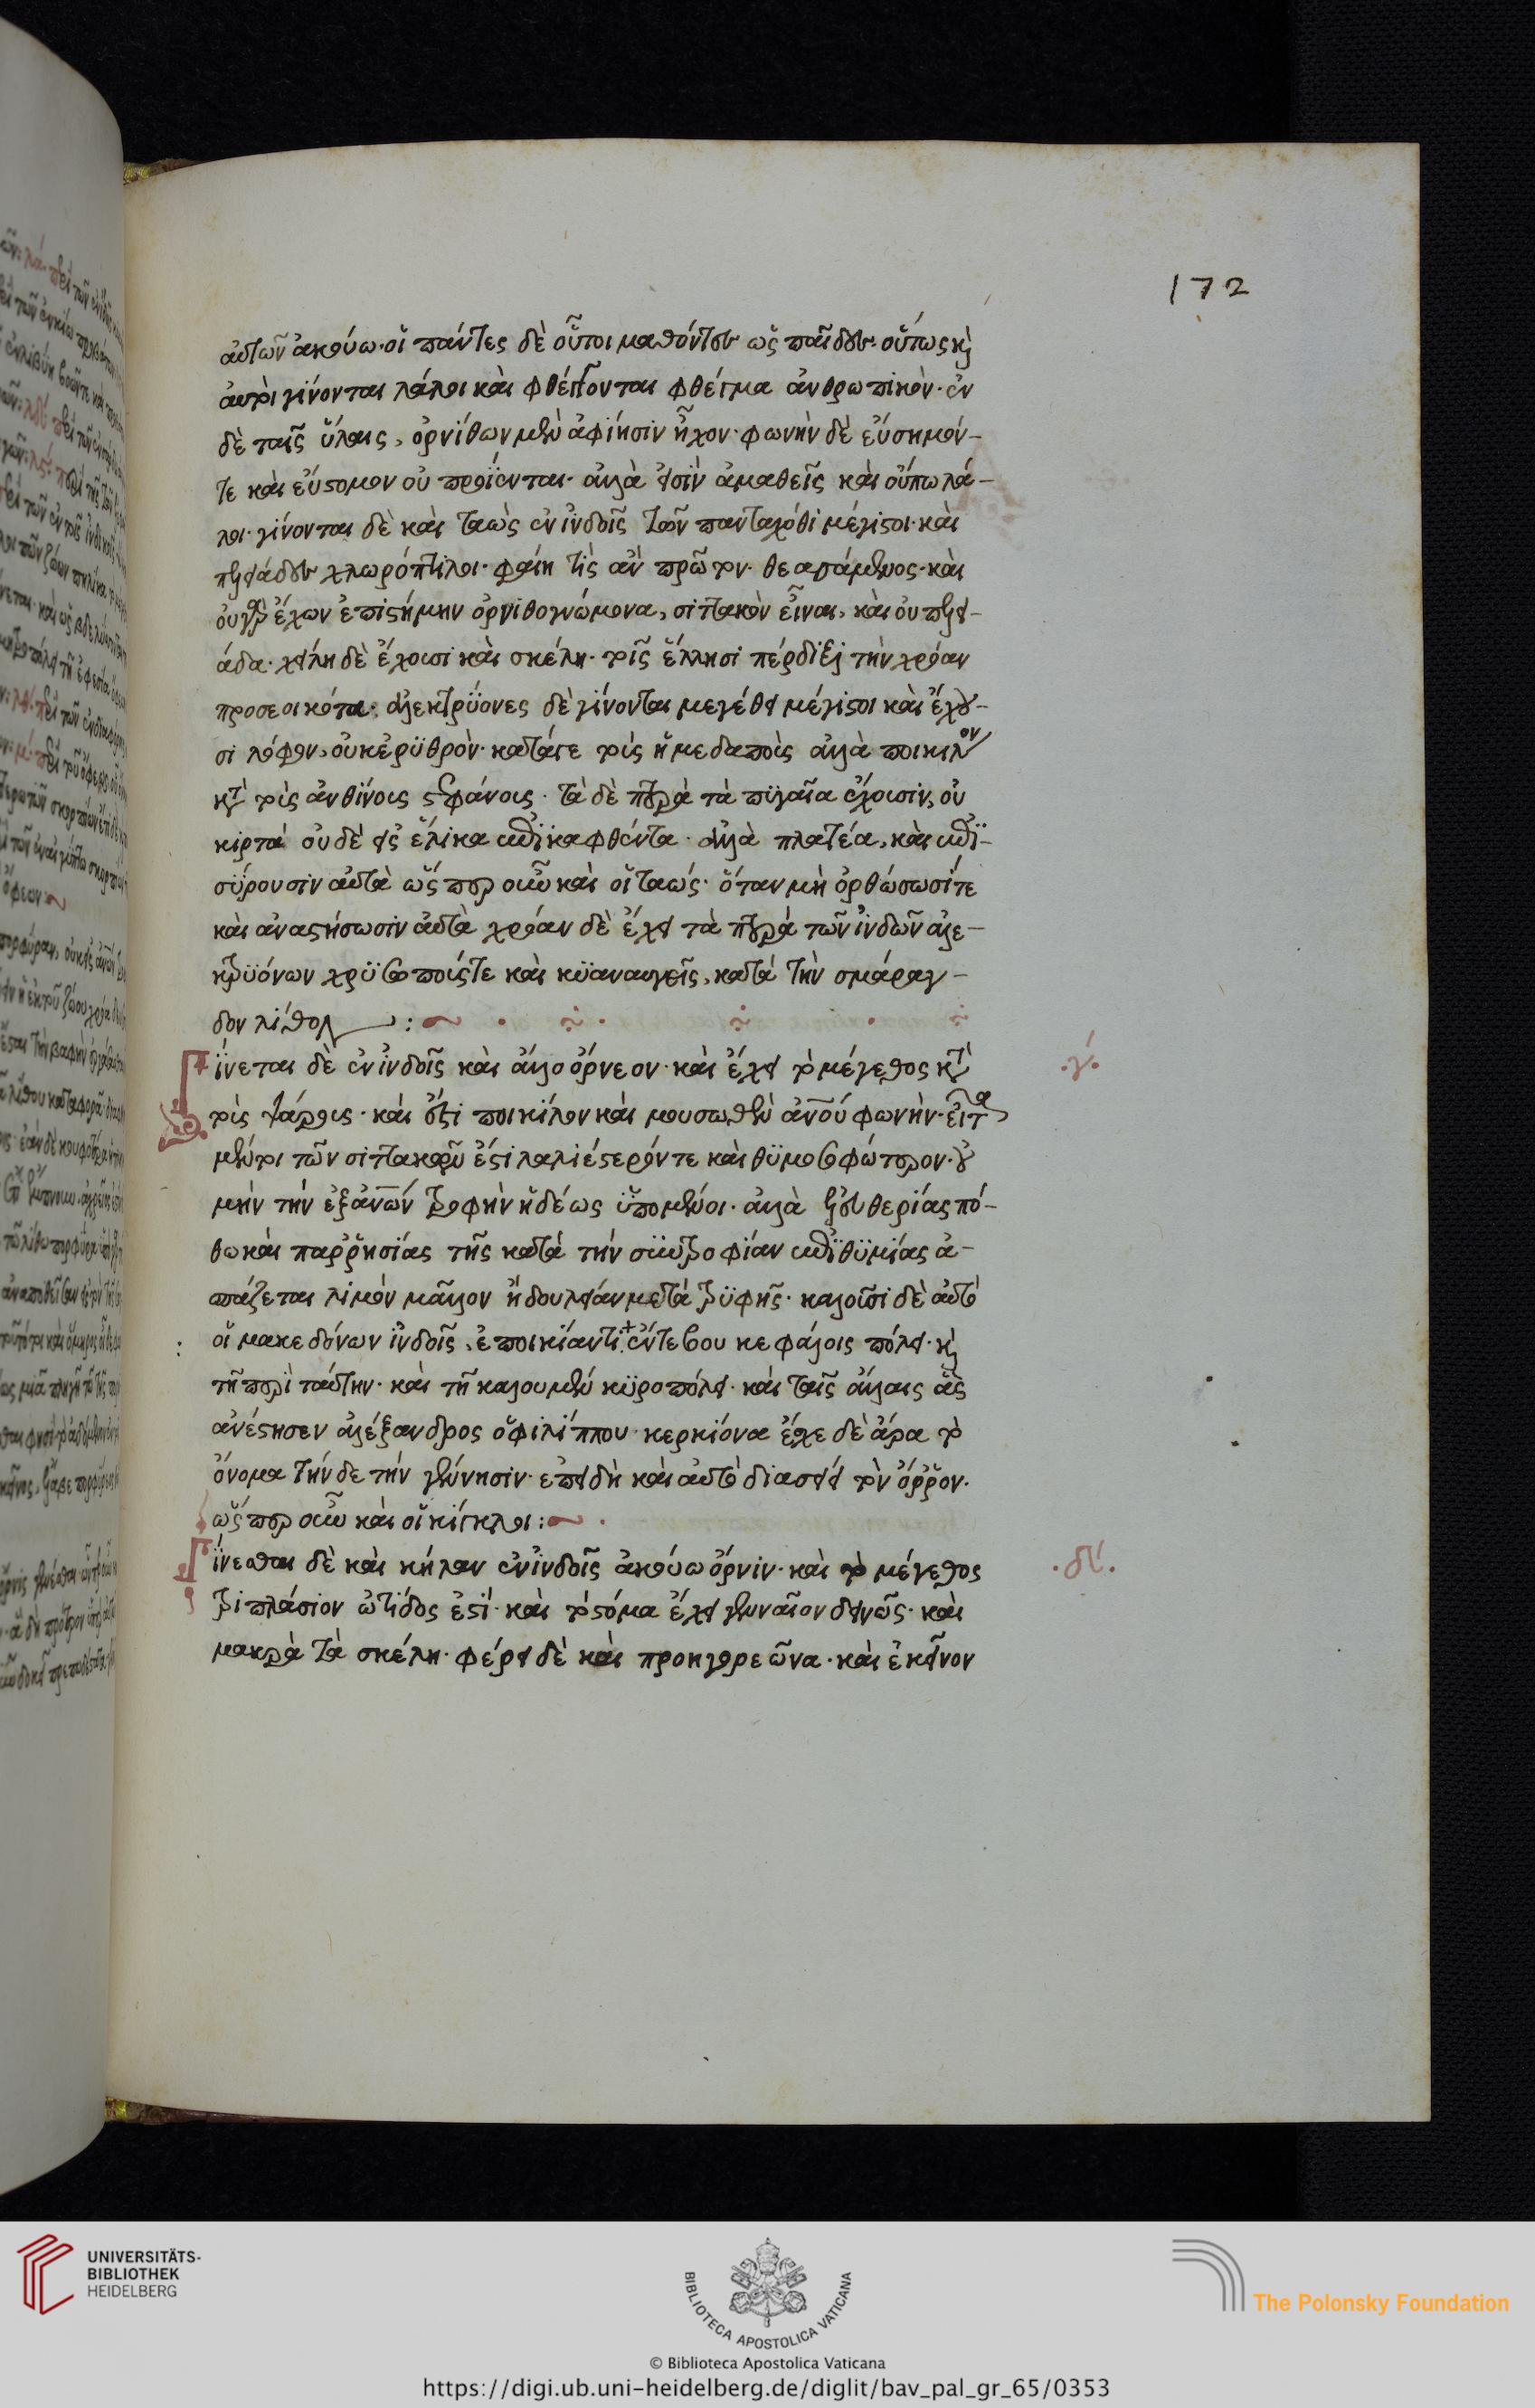 172
αὐτῶν ἀκούω· οἱ πάντες δὲ οὗτοι μαθόντες ὡς παῖδες· οὕτως κ(αὶ)
αὐτοὶ γίνονται λάλοι καὶ φθέγγονται φθέγμα ἀνθρωπικόν· ἐν
δὲ ταῖς ὕλαις, ὀρνίθων μὲν ἀφίησιν ἦχον· φωνὴν δὲ εὔσημόν-
τε καὶ εὔστομον οὐ προΐενται· ἀλλὰ εἰσὶν ἀμαθεῖς καὶ οὔπω λά-
λοι· γίνονται δὲ καὶ ταὼς ἐν ἰνδοῖς τῶν πανταχόθι μέγιστοι· καὶ
πελειάδες χλωρόπτιλοι· φαίη τὶς ἂν πρῶτον θεασάμενος· καὶ
οὐ γὰρ ἔχων ἐπιστήμην ὀρνιθογνώμονα, σιττακὸν εἶναι, καὶ οὐ πελει-
άδα· χείλη δὲ ἔχουσι καὶ σκέλη· τοῖς ἕλλησι πέρδιξι τὴν χρόαν
προσεοικότα· ἀλεκτρϋόνες δὲ γίνονται μεγέθει μέγιστοι καὶ ἔχου-
σι λόφον, οὐκ ἐρϋθρὸν κατάγε τοὶς ἡμεδαποὶς ἀλλὰ ποικίλον
κ(α)τ(ὰ) τοὶς ἀνθίνοις στεφάνοις· τὰ δὲ πτερὰ τὰ πϋγαῖα ἔχουσιν, οὐ
κιρτὰ οὐδὲ εἰς ἕλικα ἐπϊκαφθέντα· ἀλλὰ πλατέα, καὶ ἐπϊ-
σϋρουσιν αὐτὰ ὥσπερ οὖν καὶ οἱ ταώς· ὅταν μὴ ὀρθώσωσί τε
καὶ ἀναστήσωσιν αὐτὰ χρόαν δὲ ἔχει τὰ πτερά τῶν ἰνδῶν ἀλε-
κτρϋόνων χρϋσοποίς τε καὶ κϋαναυγεῖς, κατά τὴν σμάραγ-
δον λίθον :~
Γΐνεται δὲ ἐν ἰνδοῖς καὶ ἄλλο ὄρνεον· καὶ ἔχει τὸ μέγεθος κ(α)τ(ὰ)
.γ.
τοὶς ψάροις· καὶ ἔστι ποικίλον καὶ μουσωθὲν ἀν(θρώπ)ου φωνὴν· εἶτα
μέντοι τῶν σιττακοῦ ἐστὶ λαλιέστερόν τε καὶ θϋμοσοφώτερον· οὐ
μὴν τὴν ἐξ ἀν(θρώπ)ων τροφὴν ἡδέως ὑπομένοι· ἀλλὰ ἐλευθερίας πό-
θω καὶ παρῤησίας τῆς κατὰ τὴν σϋντροφίαν ἐπϊθϋμίας ἀ-
σπάζεται λιμὸν μᾶλλον ἢ δουλείαν μετὰ τρϋφῆς· καλοῦσι δὲ αὐτὸ
οἱ μακεδόνων ἰνδοῖς, ἐποικίαντι ἔντε βουκεφάλοις πόλει· κ(αὶ)
τῆ περὶ ταύτην· καὶ τῆ καλουμένη κϋροπόλει· καὶ ταῖς ἄλλαις ἃς
ἀνέστησεν ἀλέξανδρος ὁ φιλίππου κερκίονα ἔσχε δὲ ἄρα τὸ
ὄνομα τήν δε τὴν γένησιν· ἐπειδὴ καὶ αὐτὸ διασείει τὸν ὄρῥον·
ὥσπερ οὖν καὶ οἱ κίγκλοι :~
Γΐνεσθαι δὲ καὶ κήλαν ἐν ἰνδοῖς ἀκούω ὄρνιν· καὶ τὸ μέγεθος
.δ.
τριπλάσιον ὠτίδος ἐστί· καὶ τὸ στόμα ἔχει γενναῖον δεινῶς· καὶ
μακρὰ τὰ σκέλη· φέρει δὲ καὶ προηγορεῶνα· καὶ ἐκεῖνον
UNIVERSITÄTS-
BIBLIOTHEK
HEIDELBERG
BIBLIOTECA APOSTOLICA VATICANA
The Polonsky Foundation
© Biblioteca Apostolica Vaticana
https://digi.ub.uni-heidelberg.de/diglit/bav_pal_gr_65/0353